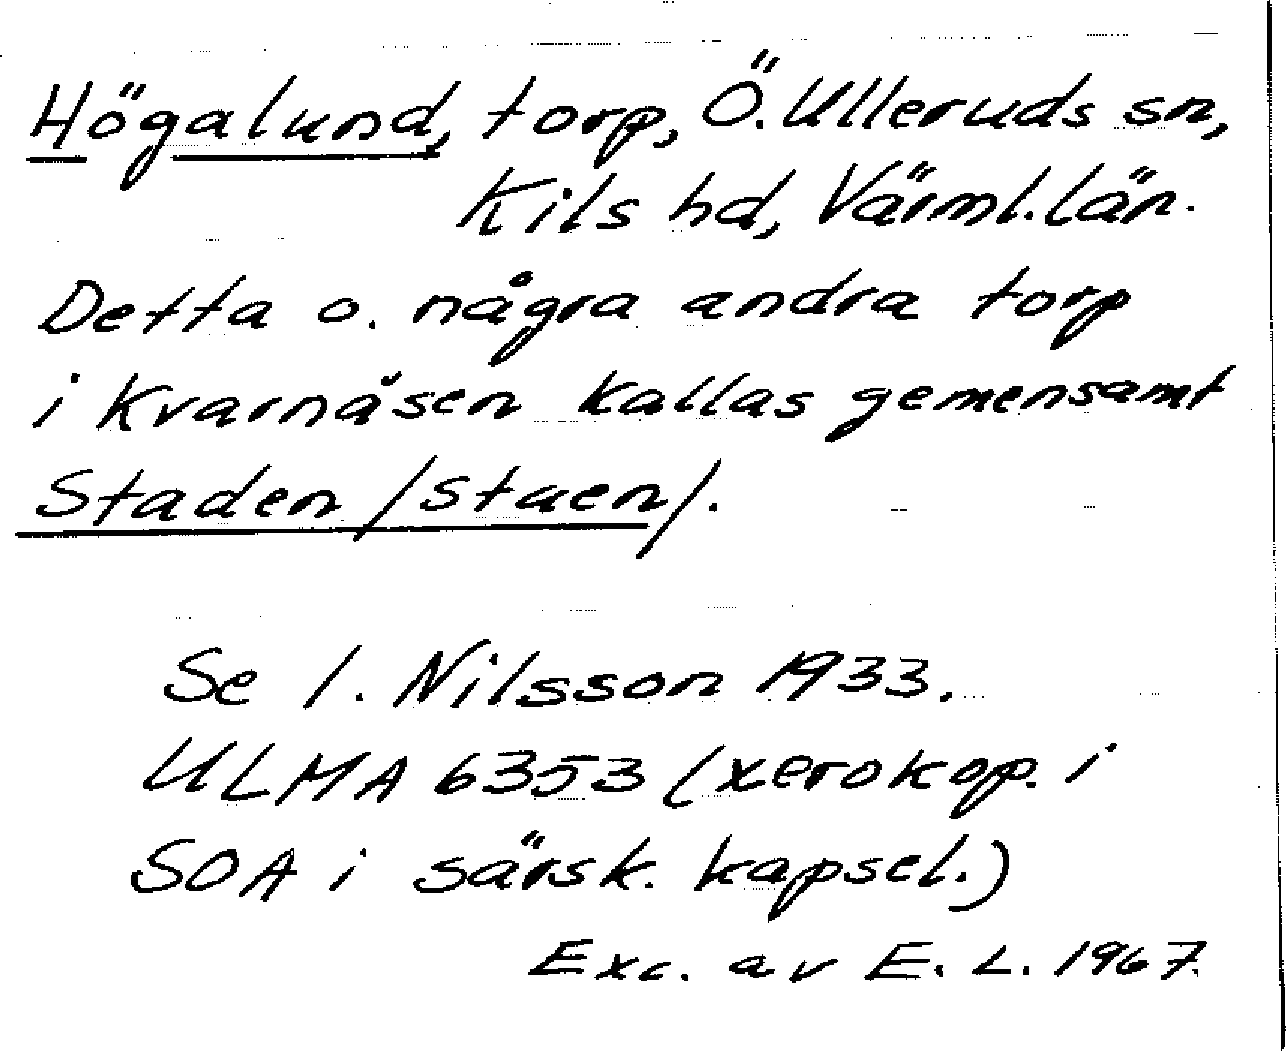 Högalund, torp, Ö. Ulleruds sn,
Kils hd, Värml. län.
Detta o. några andra torp
i Kvarnåsen kallas gemensamt
Staden /staen/.
Se I. Nilsson 1933.
ULMA 6353 (xerokop. i
SOA i särsk. kapsel.)
Exc. av E. L. 1967.